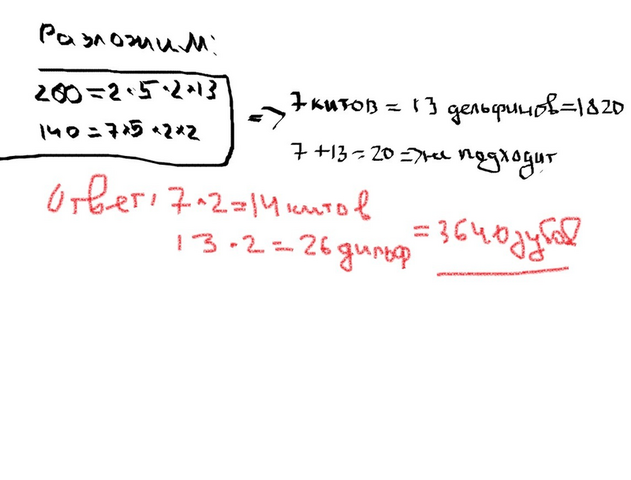 Разложим:
260=2·5·2·13
140=7·5·2·2
=> 7 китов = 13 дельфинов=1820
7+13=20=>не подходит
Ответ: 7·2=14 китов
13·2=26 дильф
=3640зубов